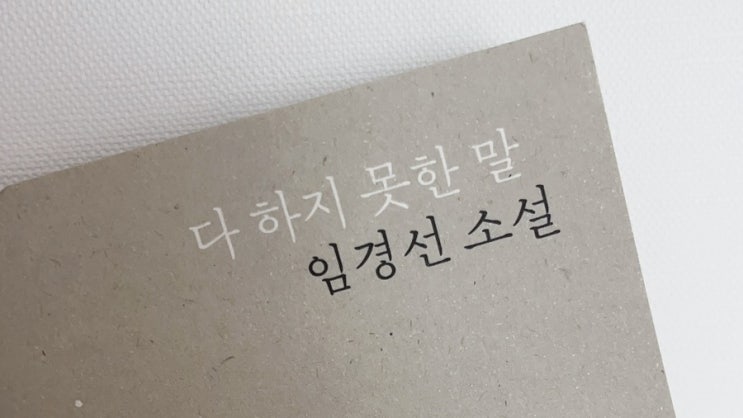 다 하지 못한 말
임경선 소설